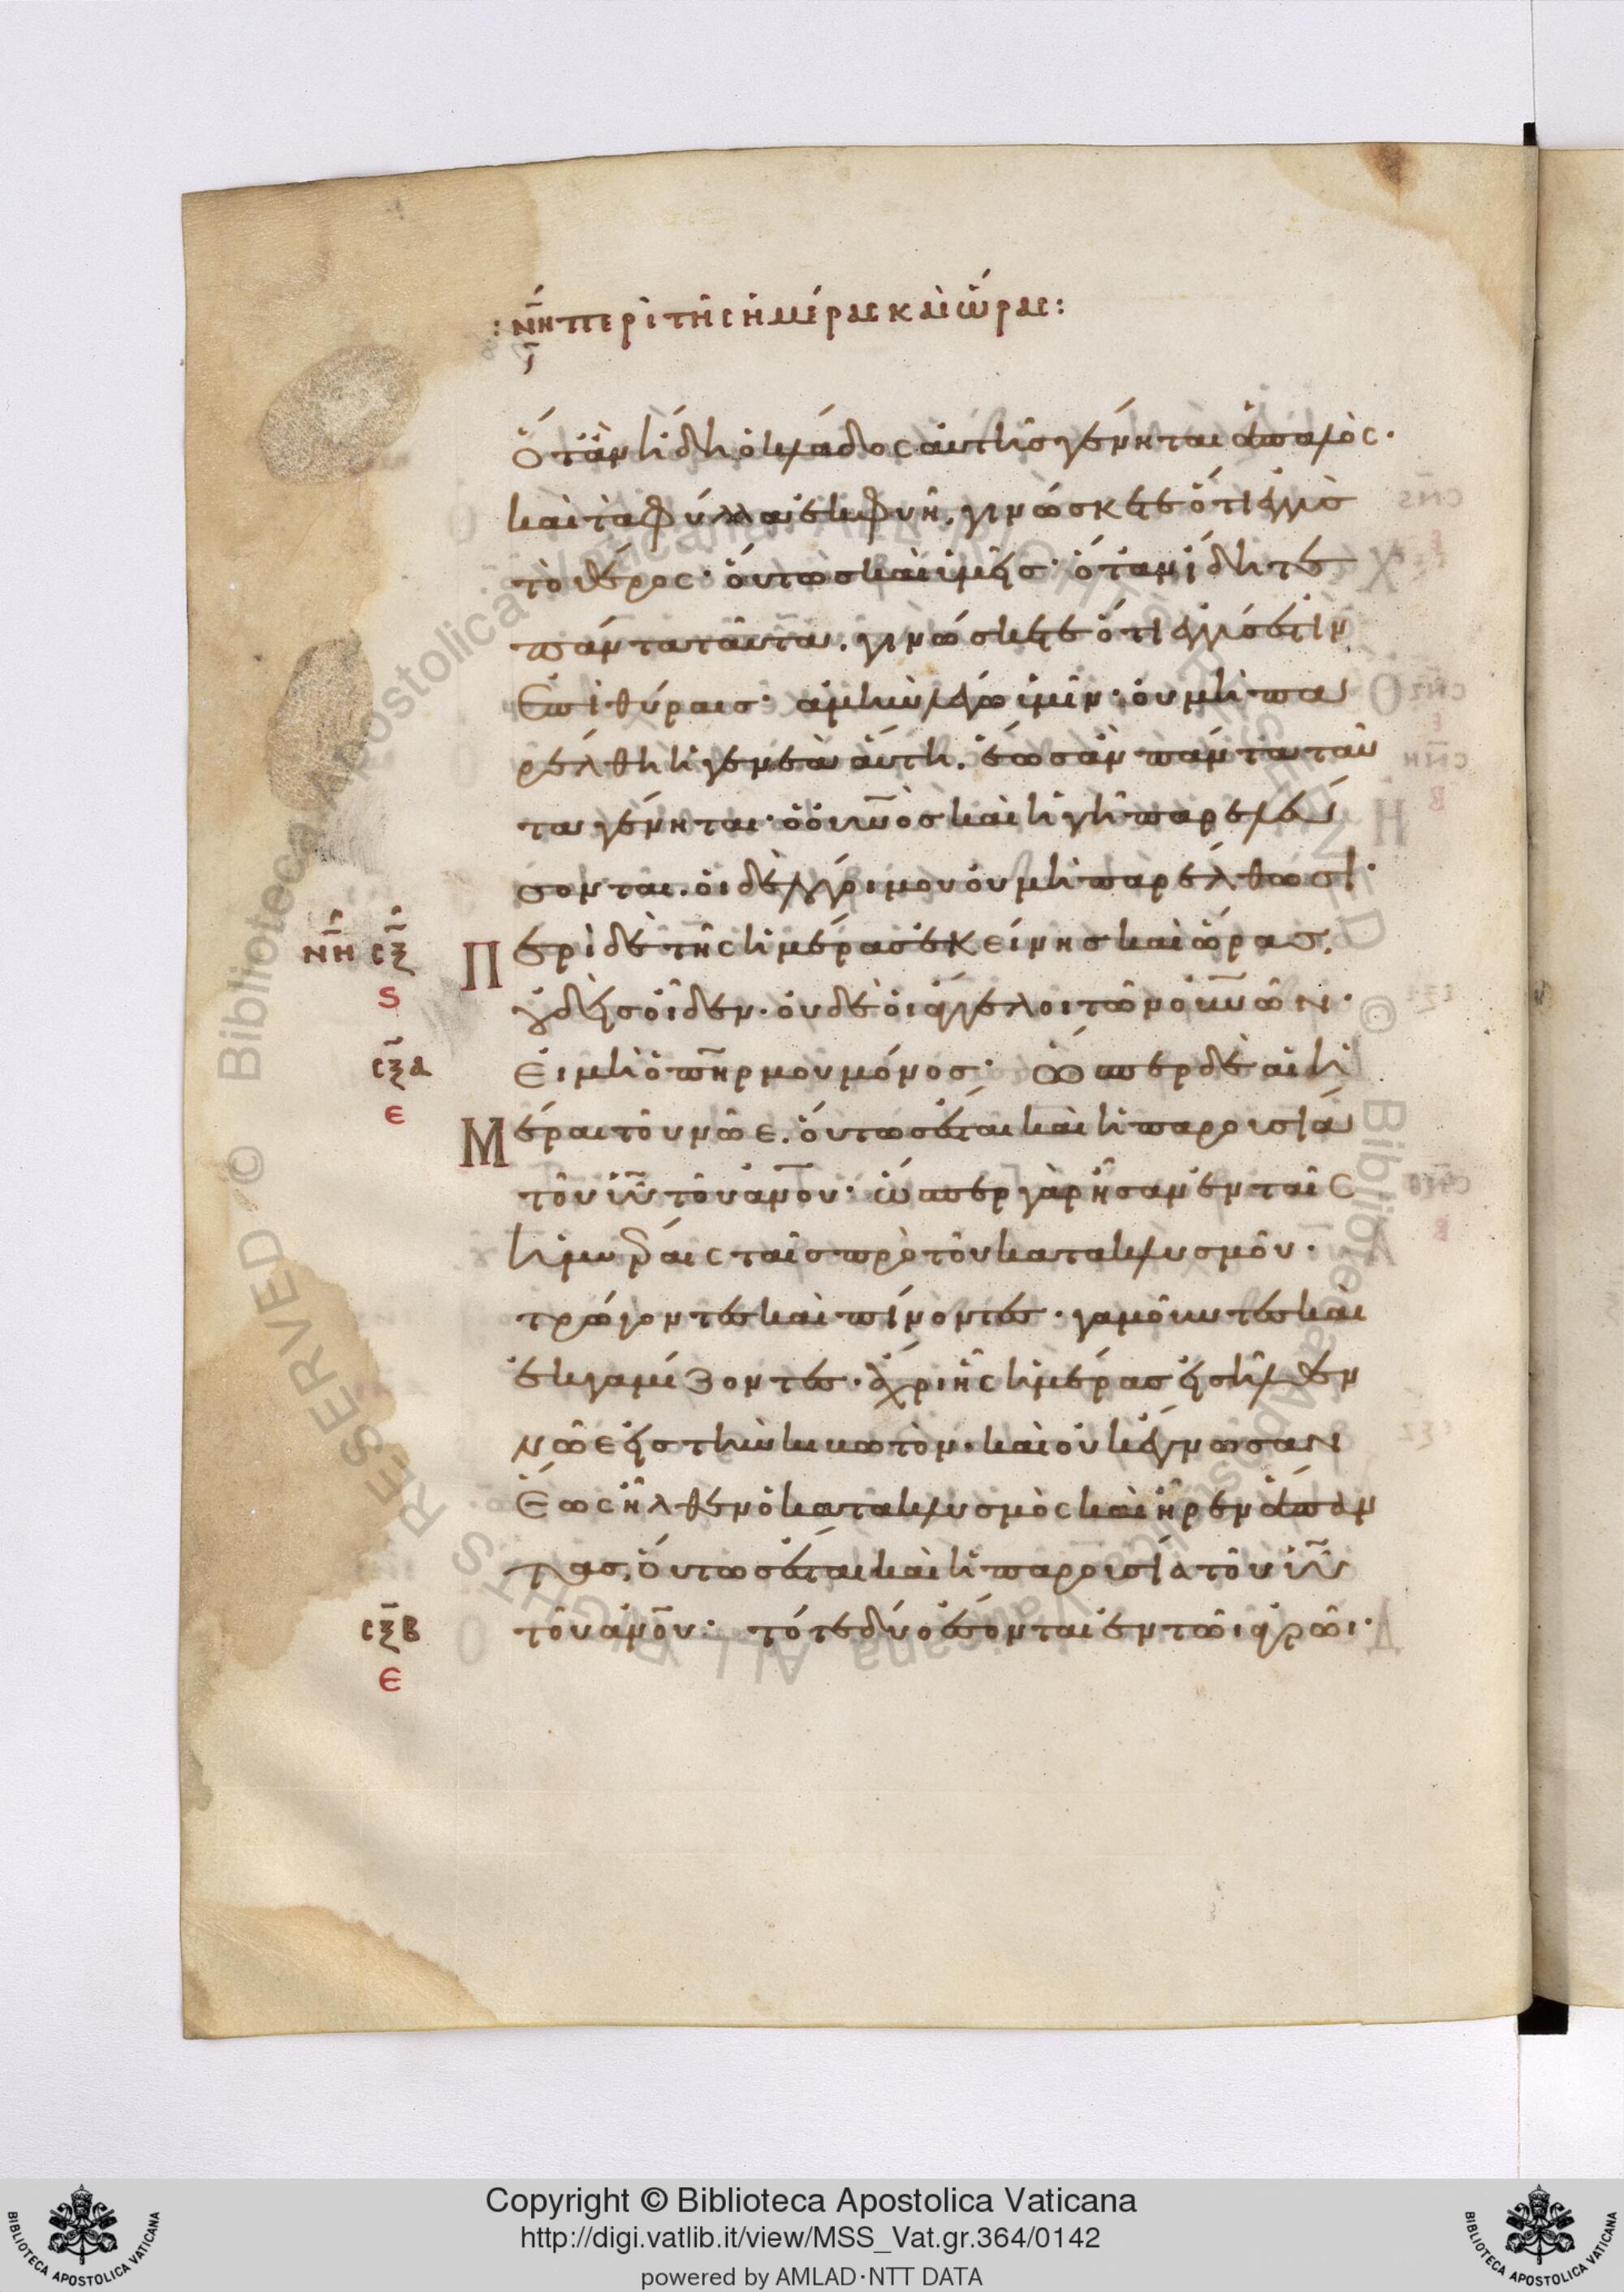 : ν̅η περὶ τῆς ἡμέρας καὶ ὥρας :
ὅταν ἤδη ὁ κλάδος αὐτῆς γένηται ἁπαλὸς·
καὶ τὰ φύλλα ἐκφυῆ. γινώσκετε ὅτι ἐγγὺς
τὸ θέρος· οὕτως καὶ ὑμεῖς· ὅταν ἴδητε
πάντα ταῦτα. γινώσκετε ὅτι ἐγγύς ἐστιν
ἐπὶ θύραις· ἀμὴν λέγω ὑμῖν· οὐ μὴ πα
ρέλθη ἡ γενεὰ αὕτη. ἕως ἂν πάντα ταῦ
τα γένηται· ὁ οὐ̅νο̅ς καὶ ἡ γῆ παρελεύ
σονται. οἱ δὲ λόγοι μου οὐ μὴ παρέλθωσι·
ν̅η̅ σ̅ξ̅ Περὶ δὲ τῆς ἡμέρας ἐκείνης καὶ ὥρας.
ς οὐδεὶς οἶδεν· οὐδὲ οἱ ἄγγελοι τῶν οὐ̅νῶν·
σ̅ξ̅α εἰ μὴ ὁ π̅η̅ρ μου μόνος· ὥσπερ δὲ αἱ ἡ
ε
Μέραι τοῦ νῶε. οὕτως ἔσται καὶ ἡ παρουσία
τοῦ υ̅ι̅υ̅ τοῦ α̅ν̅ου· ὥσπερ γὰρ ἦσαν ἐν ταῖς
ἡμέραις ταῖς πρὸ τοῦ κατακλυσμοῦ·
τρώγοντες καὶ πίνοντες· γαμοῦντες καὶ
ἐκγαμίζοντες· ἄχρι ἧς ἡμέρας εἰσῆλθεν
νῶε εἰς τὴν κιβωτὸν· καὶ οὐκ ἔγνωσαν
ἕως ἦλθεν ὁ κατακλυσμὸς καὶ ἦρεν ἅπαν
τας. οὕτως ἔσται καὶ ἡ παρουσία τοῦ υ̅ι̅υ̅
σ̅ξ̅β τοῦ α̅ν̅ου· τότε δύο ἔσονται ἐν τῶι ἀγρῶι·
ε
Copyright © Biblioteca Apostolica Vaticana
http://digi.vatlib.it/view/MSS_Vat.gr.364/0142
powered by AMLAD·NTT DATA
BIBLIOTECA APOSTOLICA VATICANA
BIBLIOTECA APOSTOLICA VATICANA